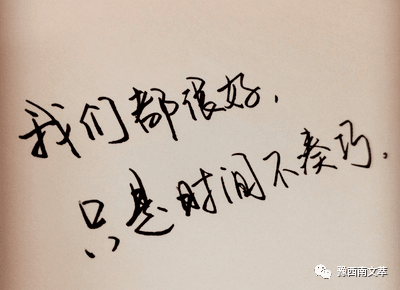 我们都很好.
只是时间不凑巧.
豫西南文萃